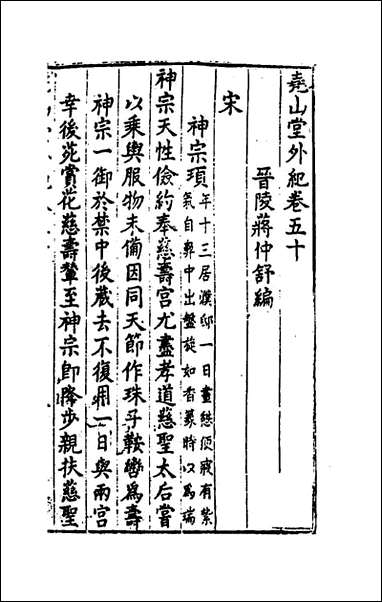 堯山堂外紀卷五十
晉陵蔣仲舒編
宋
神宗頊年十三居濮邸一日晝憩便寢有紫
氣自鼻中出盤旋如香篆時以為瑞
神宗天性儉約奉慈壽宮尤盡孝道慈聖太后嘗
以乘輿服物未備因同天節作珠子鞍轡爲壽
神宗一御於禁中後藏去不復用一日與兩宮
幸後苑賞花慈壽輦至神宗即降步親扶慈聖